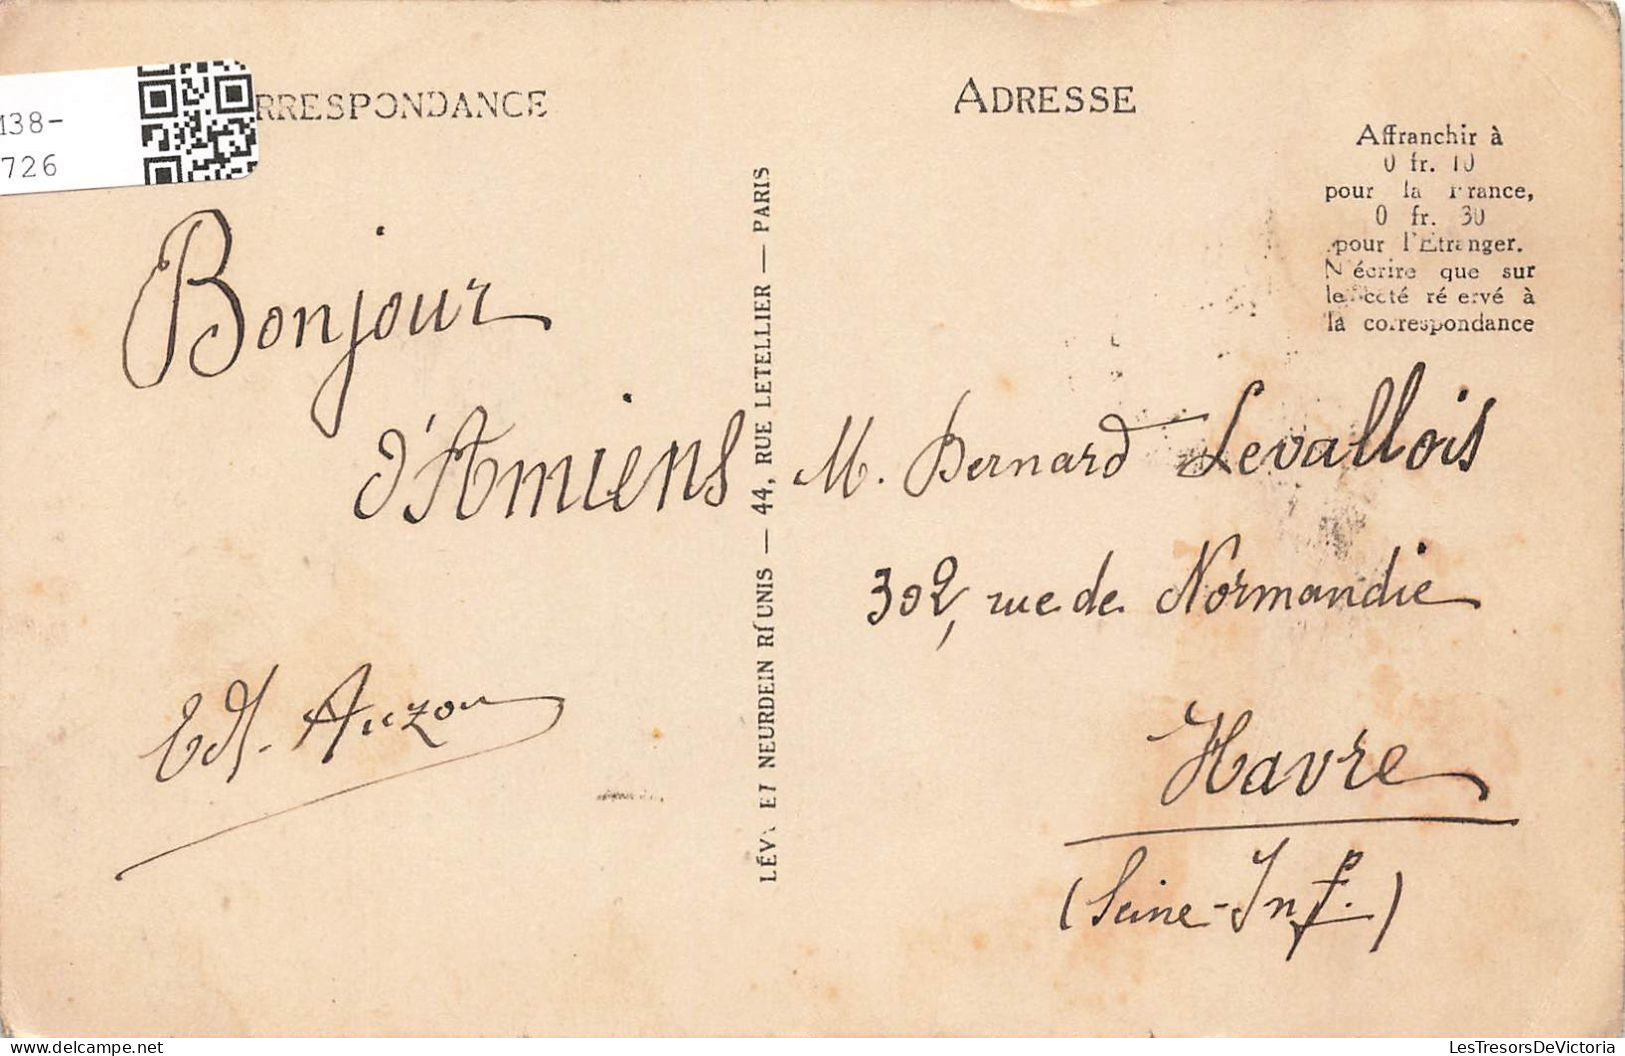 M38-
726
RRESPONDANCE
ADRESSE
Affranchir à
0 fr. 10
pour la France,
0 fr. 30
pour l'Etranger.
N'écrire que sur
le côté réservé à
la correspondance
Bonjour
d'Amiens
Ed. Auzou
LÉVY ET NEURDEIN RÉUNIS — 44, RUE LETELLIER — PARIS
M. Bernard Levallois
302, rue de Normandie
Havre
(Seine-Infre.)
LesTresorsDeVictoria